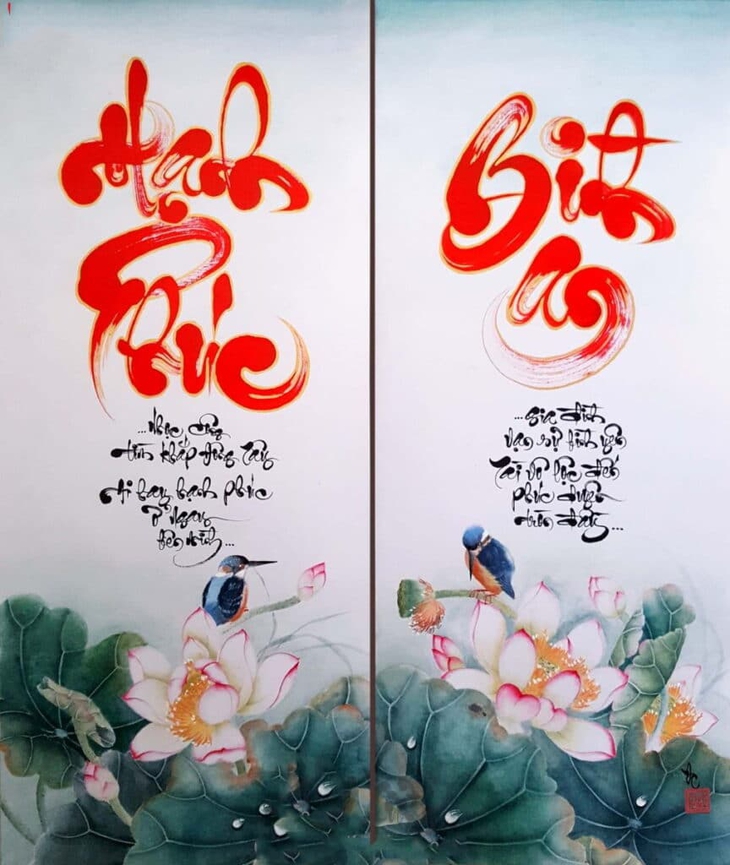 Hạnh
Phúc
...nhọc công
tìm khắp đông tây
Ai hay hạnh phúc
ở ngay
bên mình...
Bình
an
...gia đình
vạn sự bình yên
Tài vô lộc đến
phúc duyên
tròn đầy...